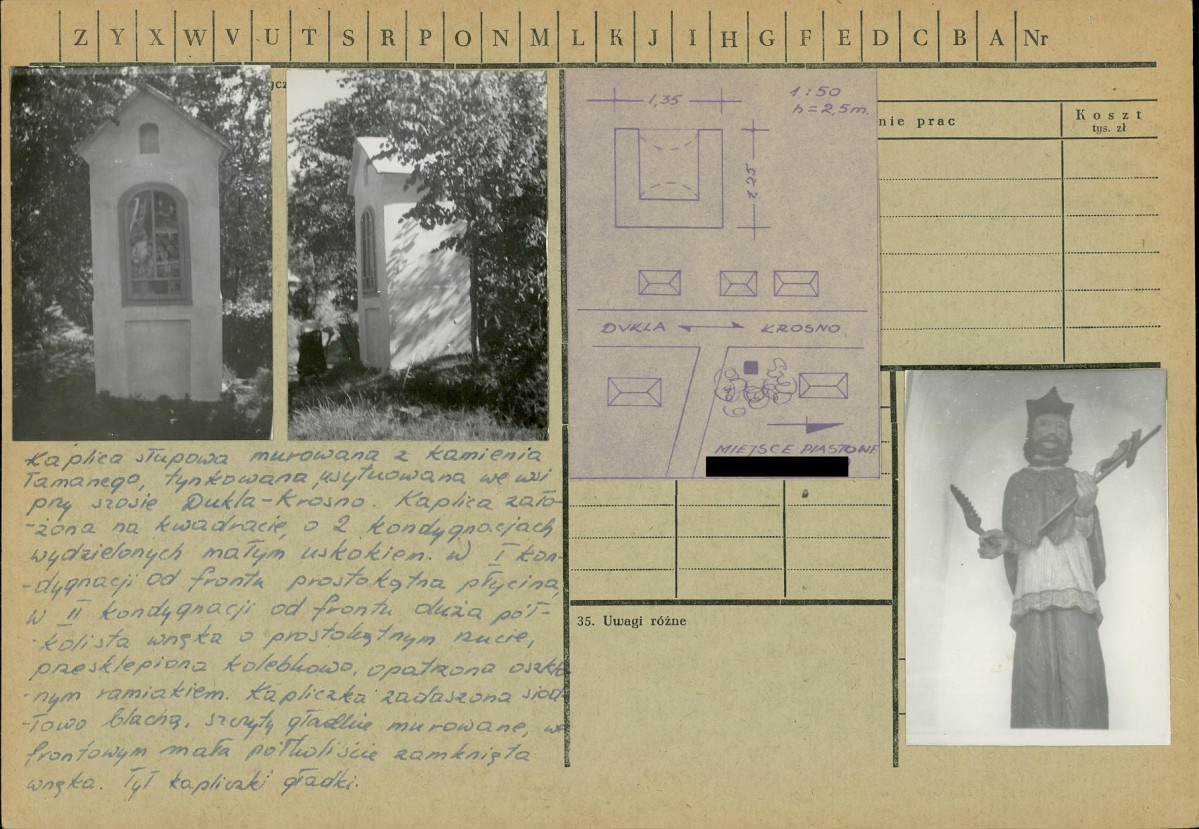 Z Y X W V U T S R P O N M L K J I H G F E D C B A Nr
1,35
1:50
h=2,5m.
nie prac
Koszt
tys. zł
DUKLA KROSNO
MIEJSCE PIASTOWE
Kaplica słupowa murowana z kamienia
łamanego, tynkowana, usytuowana we wsi
przy szosie Dukla-Krosno. Kaplica zało-
-żona na kwadracie, o 2 kondygnacjach
wydzielonych małym uskokiem. W I kon-
-dygnacji od frontu prostokątna płycina,
w II kondygnacji od frontu duża pół-
-kolista wnęka o prostokątnym rzucie,
przesklepiona kolebkowo, opatrzona oszklo-
-nym ramiakiem. Kapliczka zadaszona siod-
-łowo blachą, szczyty gładkie murowane, we
frontowym mała półkoliście zamknięta
wnęka. Tył kapliczki gładki.
35. Uwagi różne